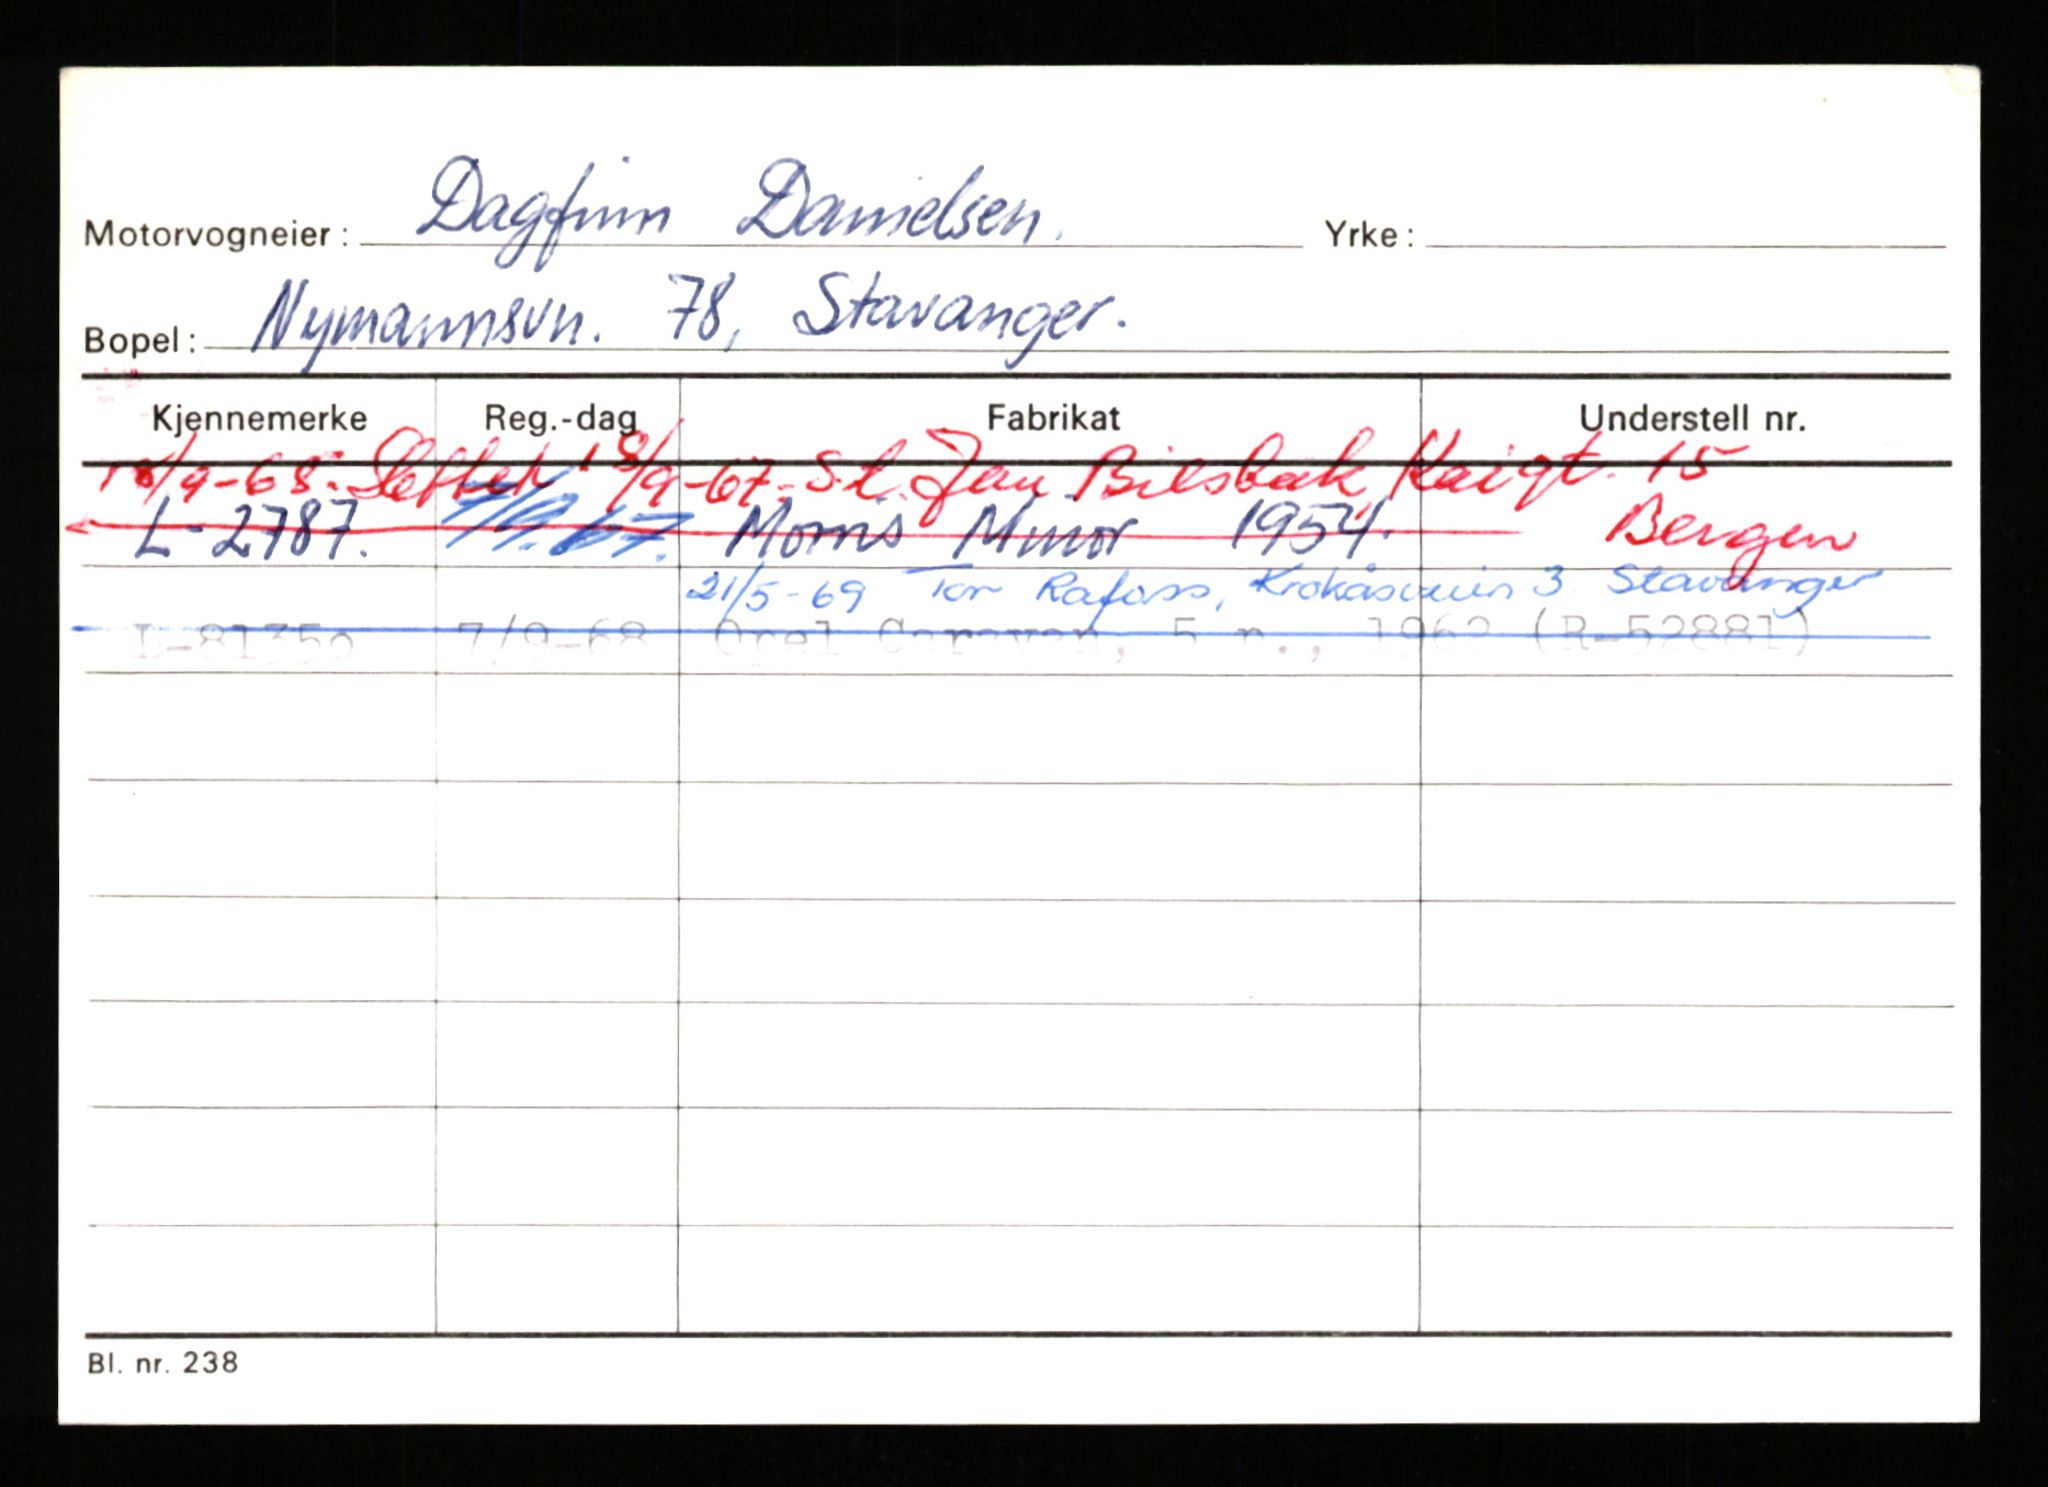 Motorvogneier: Dagfinn Danielsen. Yrke:
Bopel: Nymannsvn. 78, Stavanger.
Kjennemerke Reg.-dag Fabrikat Understell nr.
/9-68. Slettet 18/9-67. S.l. Jan Bilsbak, Kaigt. 15
Bergen
L-2787. 7/9.67. Morris Minor 1954.
21/5-69 Tor Rafoss, Krokåsveien 3 Stavanger
L-81350 7/9-68 Opel Caravan, 5 p., 1962 (R-52881)
Bl. nr. 238